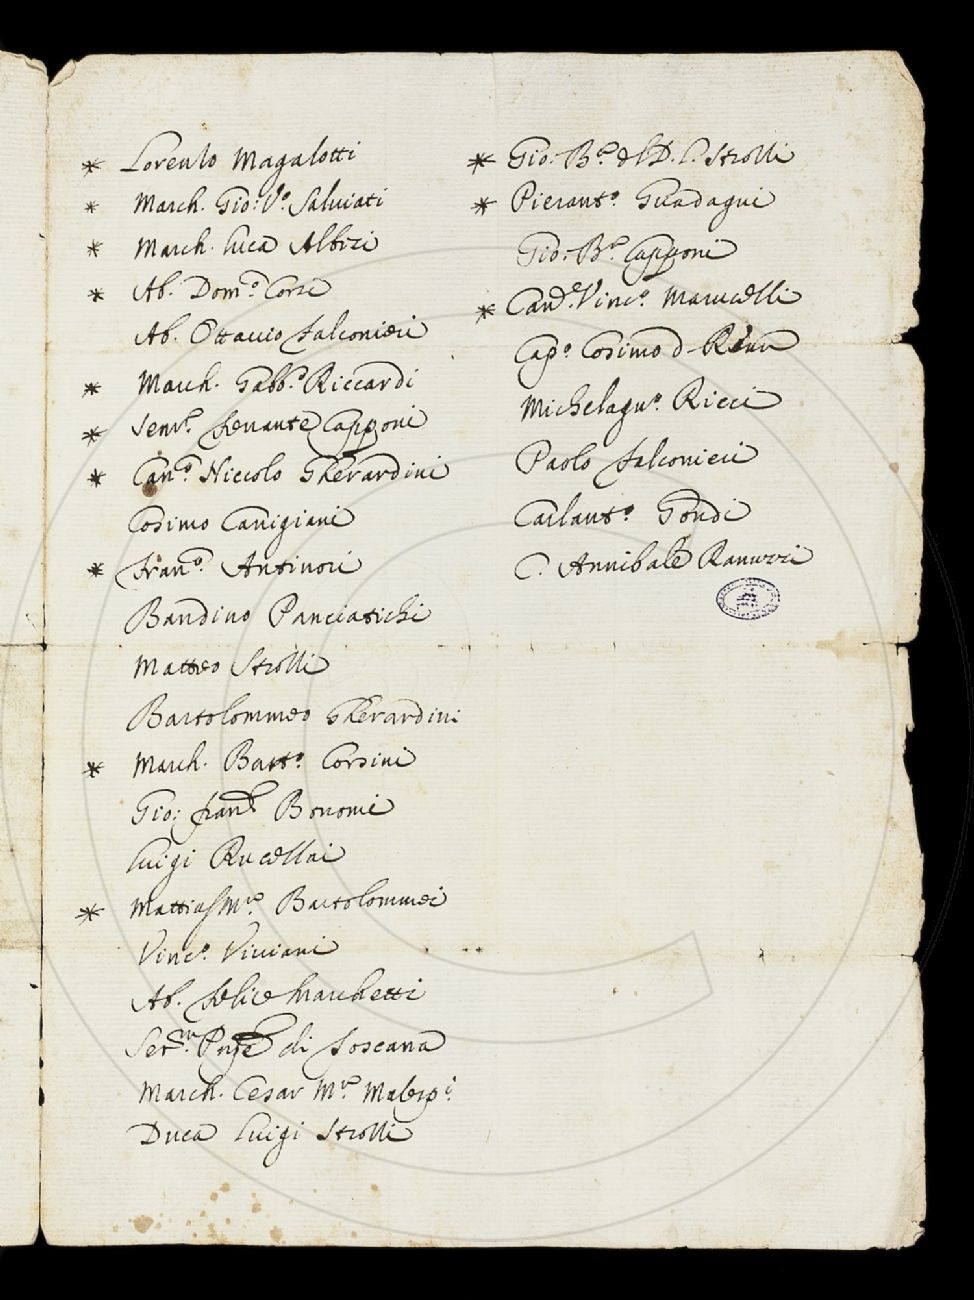 * Lorenzo Magalotti
* March. Gio: V.º Salviati
* March. Luca Albizi
* Ab. Dom.º Corsi
Ab. Ottavio Falconieri
* March. Gabb.º Riccardi
* Sen.r Ferrante Capponi
* Can.º Niccolo Gherardini
Cosimo Canigiani
* Fran.º Antinori
Bandino Panciatichi
Matteo Strozzi
Bartolommeo Gherardini
* March. Batt.ª Corsini
Gio: Fran.º Bonomi
Luigi Rucellai
* Mattias M.ª Bartolommei
Vinc.º Viviani
Ab. Felice Marchetti
Ser.mo Pnpe di Toscana
March. Cesar M.ª Malesp.i
Duca Luigi Strozzi
* Gio: B.ª d l D. L. Strozzi
* Pierant.º Guadagni
Gio: B.ª Capponi
* Cand.e Vinc.º Marucelli
Cap.º Cosimo d
Michelagn.º Ricci
Paolo Falconieri
Carlant.º Gondi
C. Annibale Ranuzzi